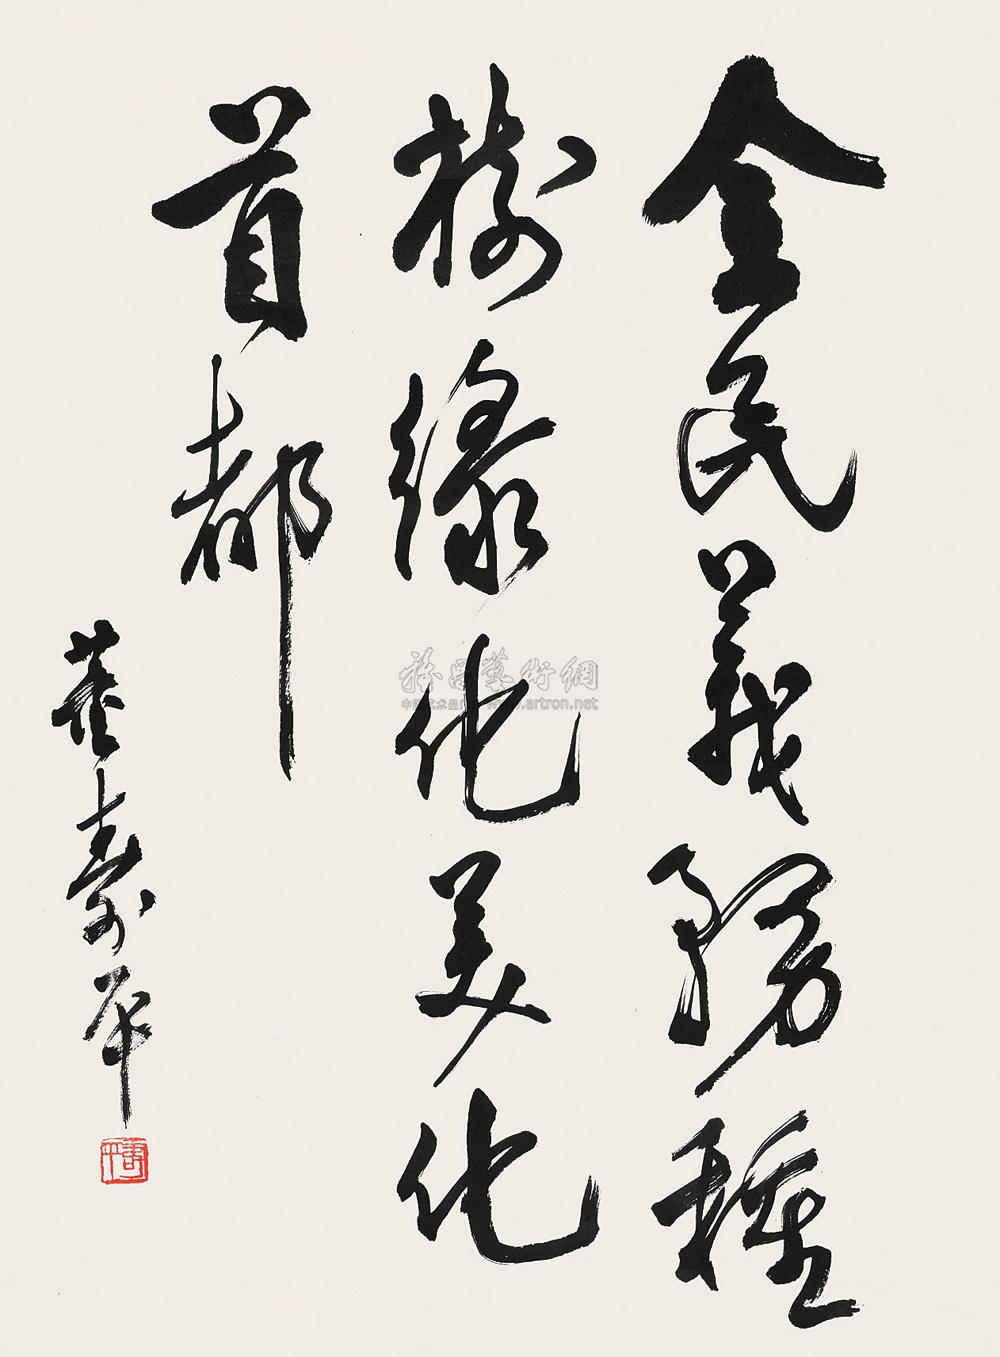 全民義務種
樹綠化美化
首都
董壽平
壽平
雅昌藝術網
中国艺术品门户 www.artron.net